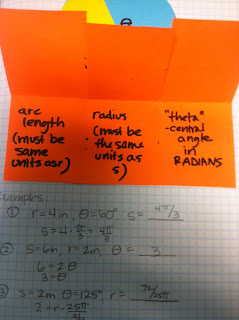 θ
arc
length
(must be
same
units as r)
radius
(must be
the same
units as
s)
"theta"
-central
angle
in
RADIANS
Examples:
① r=4in, θ=60°, s= 4π/3
s=4·π/3=4π/3
② s=6in, r=2in, θ= 3
6=2θ
3=θ
③ s=2m θ=125°, r= 72/25π
2=r·25π/36